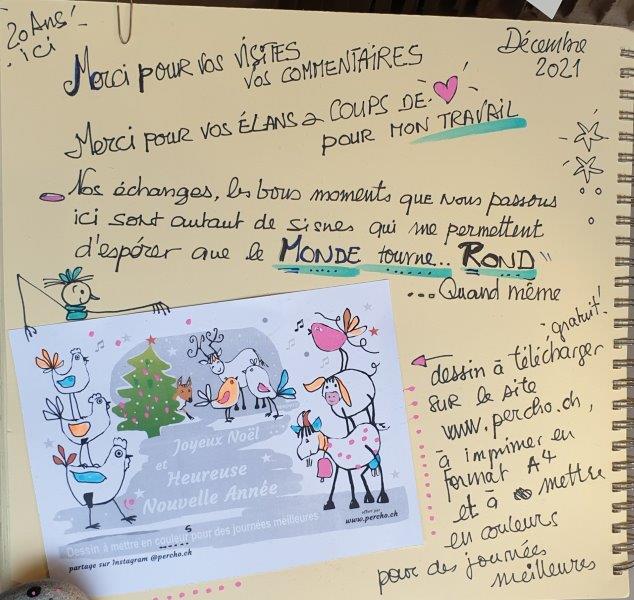 20 Ans!
ici
Décembre
2021
Merci pour vos visites
vos commentaires
Merci pour vos élans & coups de
pour mon travail
Nos échanges, les bons moments que nous passons
ici sont autant de signes qui me permettent
d'espérer que le Monde tourne.. Rond
...Quand même
gratuit!
dessin à télécharger
sur le site
www.percho.ch,
à imprimer en
format A4
et à mettre
en couleurs
pour des journées
meilleures
Joyeux Noël ...
et Heureuse
Nouvelle Année
offert par
www.percho.ch
Dessin à mettre en couleurs pour des journées meilleures
partage sur Instagram @percho.ch